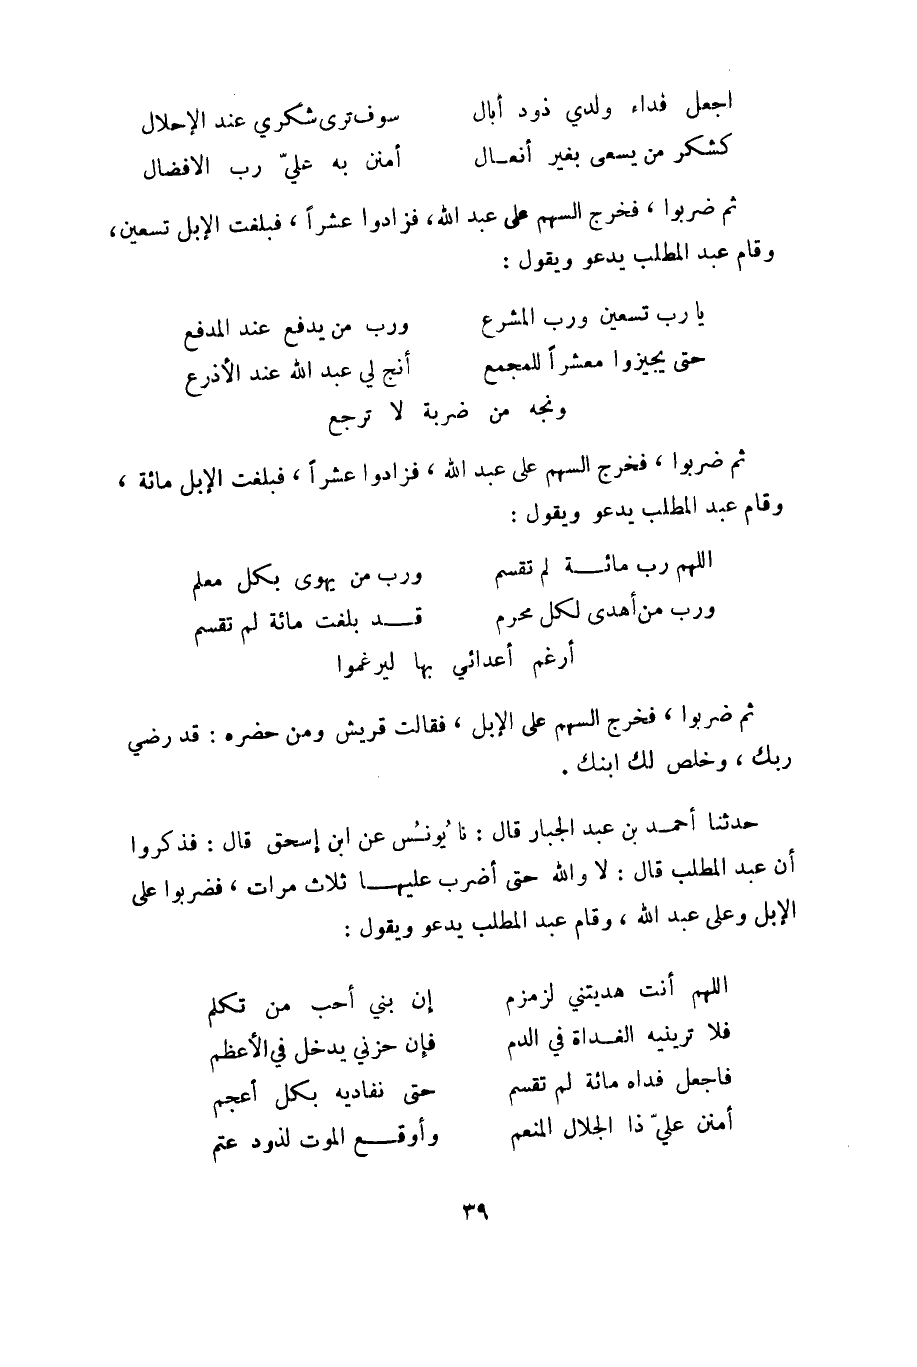 اجعل فداء ولدي ذود أبال سوف ترى شكري عند الإحلال
كشكر من يسعى بغير أنعـال أمنن به عليّ رب الافضال
ثم ضربوا ، فخرج السهم على عبد الله، فزادوا عشراً ، فبلغت الإبل تسعين،
وقام عبد المطلب يدعو ويقول :
يا رب تسعين ورب المشرع ورب من يدفع عند المدفع
حتى يجيزوا معشراً للمجمع أنج لي عبد الله عند الأذرع
ونجه من ضربة لا ترجع
ثم ضربوا ، فخرج السهم على عبد الله ، فزادوا عشراً ، فبلغت الإبل مائة ،
وقام عبد المطلب يدعو ويقول :
اللهم رب مائـــة لم تقسم ورب من يهوى بكل معلم
ورب من أهدى لكل محرم قــد بلغت مائة لم تقسم
أرغم أعدائي بها ليرغموا
ثم ضربوا ، فخرج السهم على الإبل ، فقالت قريش ومن حضره : قد رضي
ربك ، وخلص لك ابنك .
حدثنا أحمـد بن عبد الجبار قال : نا يُونسُ عن ابن إسحق قال : فذكروا
أن عبد المطلب قال : لا والله حتى أضرب عليهـــا ثلاث مرات ، فضربوا على
الإبل وعلى عبد الله ، وقام عبد المطلب يدعو ويقول :
اللهم أنت هديتني لزمزم إن بني أحب من تكلم
فلا ترينيه الغـداة في الدم فإن حزني يدخل في الأعظم
فاجعل فداه مائة لم تقسم حتى نفاديه بكل أعجم
أمنن عليّ ذا الجلال المنعم وأوقـــع الموت لذود عتم
٣٩